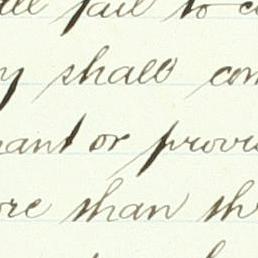 all fail to co
y shall com
ant or provis
ore than thr